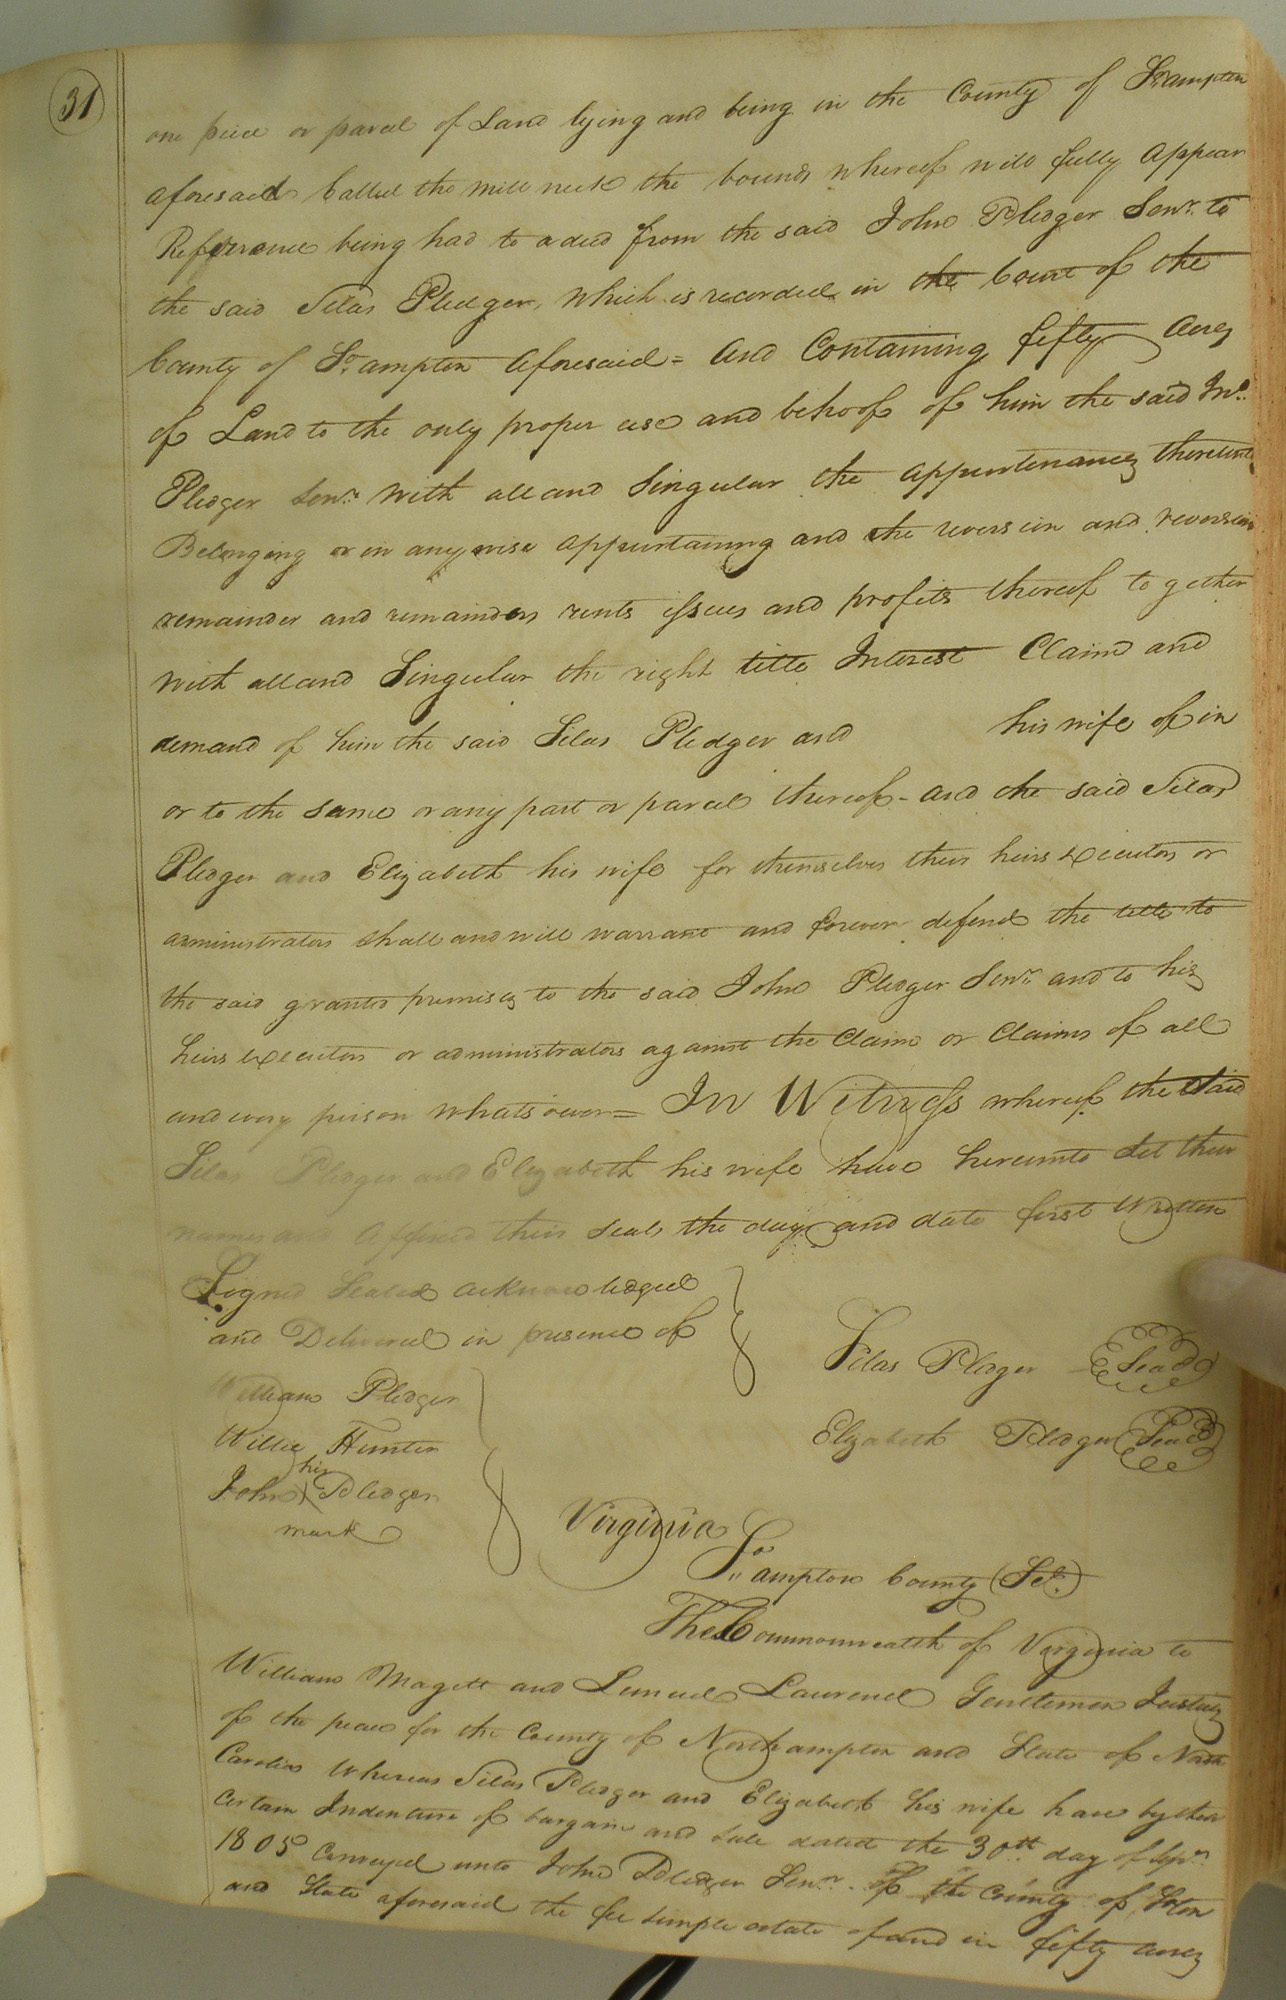 31
one peice or parcel of Land lying and being in the County of So.ampton
aforesaid Called the mill neck the bounds whereof will fully appear
Refference being had to a deed from the said John Pledger Senr. to
the said Silas Pledger, which is recorded in the Court of the
County of So.ampton aforesaid = and Containing fifty acres
of Land to the only proper use and behoof of him the said Jno.
Pledger Senr. with all and Singular the appurtenances thereunto
Belonging or in anywise appurtaining and the reversion and reversions
remainder and remainders rents issues and profits thereof together
with all and Singular the right title Interest Claim and
demand of him the said Silas Pledger and his wife of in
or to the same or any part or parcel thereof - and the said Silas
Pledger and Elizabeth his wife for themselves their heirs executors or
administrators shall and will warrant and forever defend the title to
the said granted premises to the said John Pledger Senr. and to his
heirs executors or administrators against the Claim or Claims of all
and every person whatsoever = In Witness whereof the said
Silas Pledger and Elizabeth his wife have hereunto set their
names and affixed their seals the day and date first written
Signed Sealed acknowledged
and Delivered in presence of
Silas Pledger Seal
William Pledger
Elizabeth Pledger Seal
Willie Hunter
his
John X Pledger
mark
Virginia
So.ampton County (Sct.)
The Commonwealth of Virginia to
William Magett and Lemuel Laurence Gentlemen Justices
of the peace for the County of Northampton and State of North
Carolina Whereas Silas Pledger and Elizabeth his wife have by their
certain Indenture of bargain and sale dated the 30th day of Sepr.
1805 Conveyed unto John Pledger Senr. of the County of Soton
and State aforesaid the fee simple estate of and in fifty acres